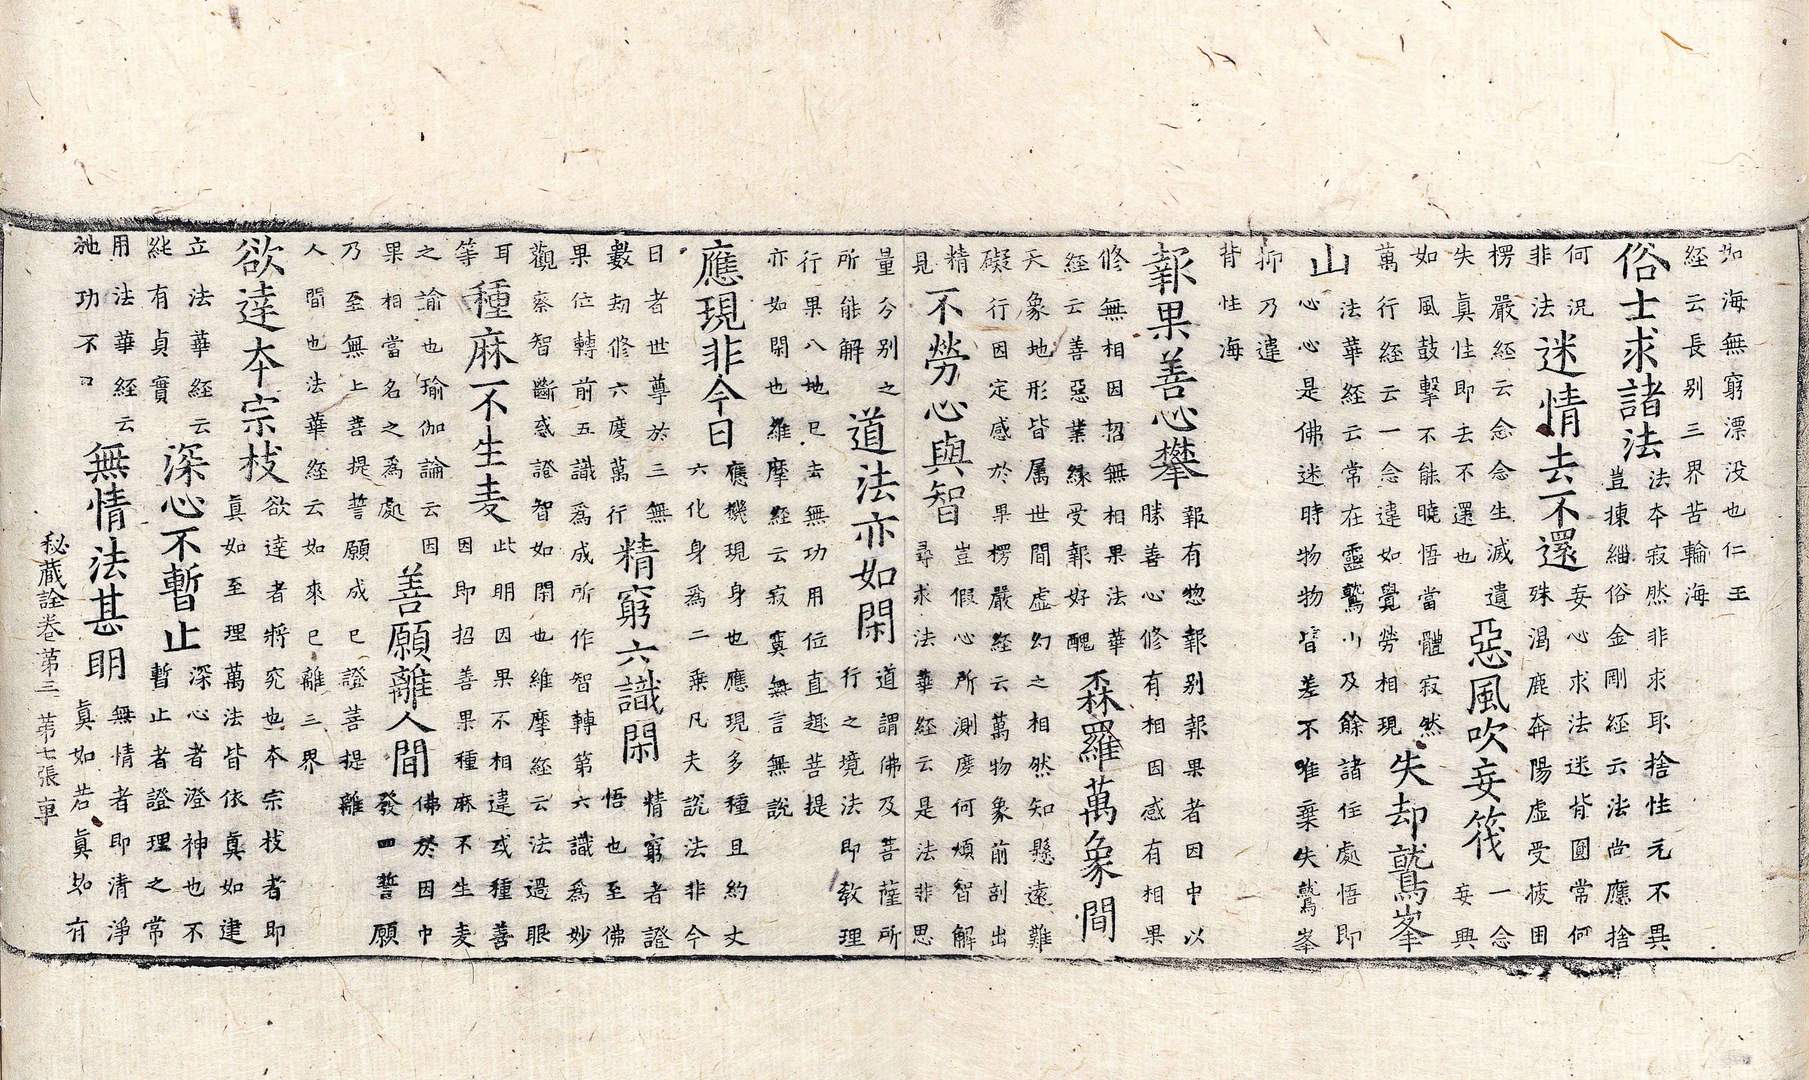 如海無窮漂没也仁王
經云長别三界苦輪海
俗士求諸法
法本寂然非求取捨性元不異
豈揀緇俗金剛經云法尚應捨
何況
非法
迷情去不還
妄心求法迷背圓常何
殊渴鹿奔陽虛受疲困
楞嚴經云念念生滅遺
失真性即去不還也
惡風吹妄筏
一念
妄興
如風鼓擊不能曉悟當體寂然
萬行經云一念違如覺勞相現
失却鷲峯
山
法華經云常在靈鷲山及餘諸住處悟即
心心是佛迷時物物皆差不唯棄失鷲峯
抑乃違
背性海
報果善心攀
報有惣報别報果者因中以
勝善心修有相因感有相果
修無相因招無相果法華
經云善惡業緣受報好醜
森羅萬象間
天象地形皆属世間虛幻之相然知懸遠難
礙行因定感於果楞嚴經云萬物象前剖出
精
見
不勞心與智
豈假心所測度何煩智解
尋求法華經云是法非思
量分别之
所能解
道法亦如閑
道謂佛及菩薩所
行之境法即教理
行果八地已去無功用位直趣菩提
亦如閑也維摩經云寂寞無言無說
應現非今日
應機現身也應現多種且約丈
六化身為二乘凡夫說法非今
日者世尊於三無
數劫修六度萬行
精窮六識閑
精窮者證
悟也至佛
果位轉前五識為成所作智轉第六識為妙
觀察智斷惑證智如閑也維摩經云法過眼
耳
等
種麻不生麦
此明因果不相違或種善
因即招善果種麻不生麦
之諭也瑜伽論云因
果相當名之為處
善願離人間
佛於因中
發一誓願
乃至無上菩提誓願成已證菩提離
人間也法華經云如來已離三界
欲達本宗枝
欲達者將究也本宗枝者即
真如至理萬法皆依真如建
立法華經云
純有貞實
深心不暫止
深心者澄神也不
暫止者證理之常
用法華經云
施功不
無情法甚明
無情者即清淨
真如若真如有
秘蔵詮卷第三 第七張 車